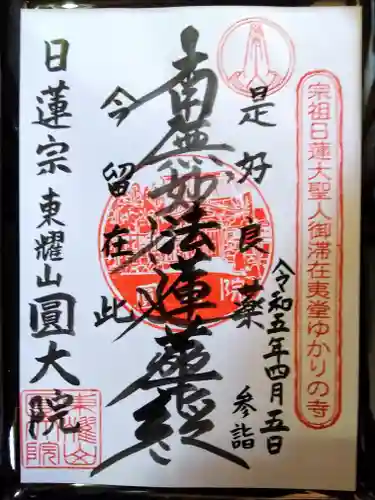 宗祖日蓮大聖人御滞在夷堂ゆかりの寺
令和五年四月五日
参詣
是好良薬
南無妙法蓮華経
今留在此
日蓮宗 東耀山 圓大院
東耀山
院